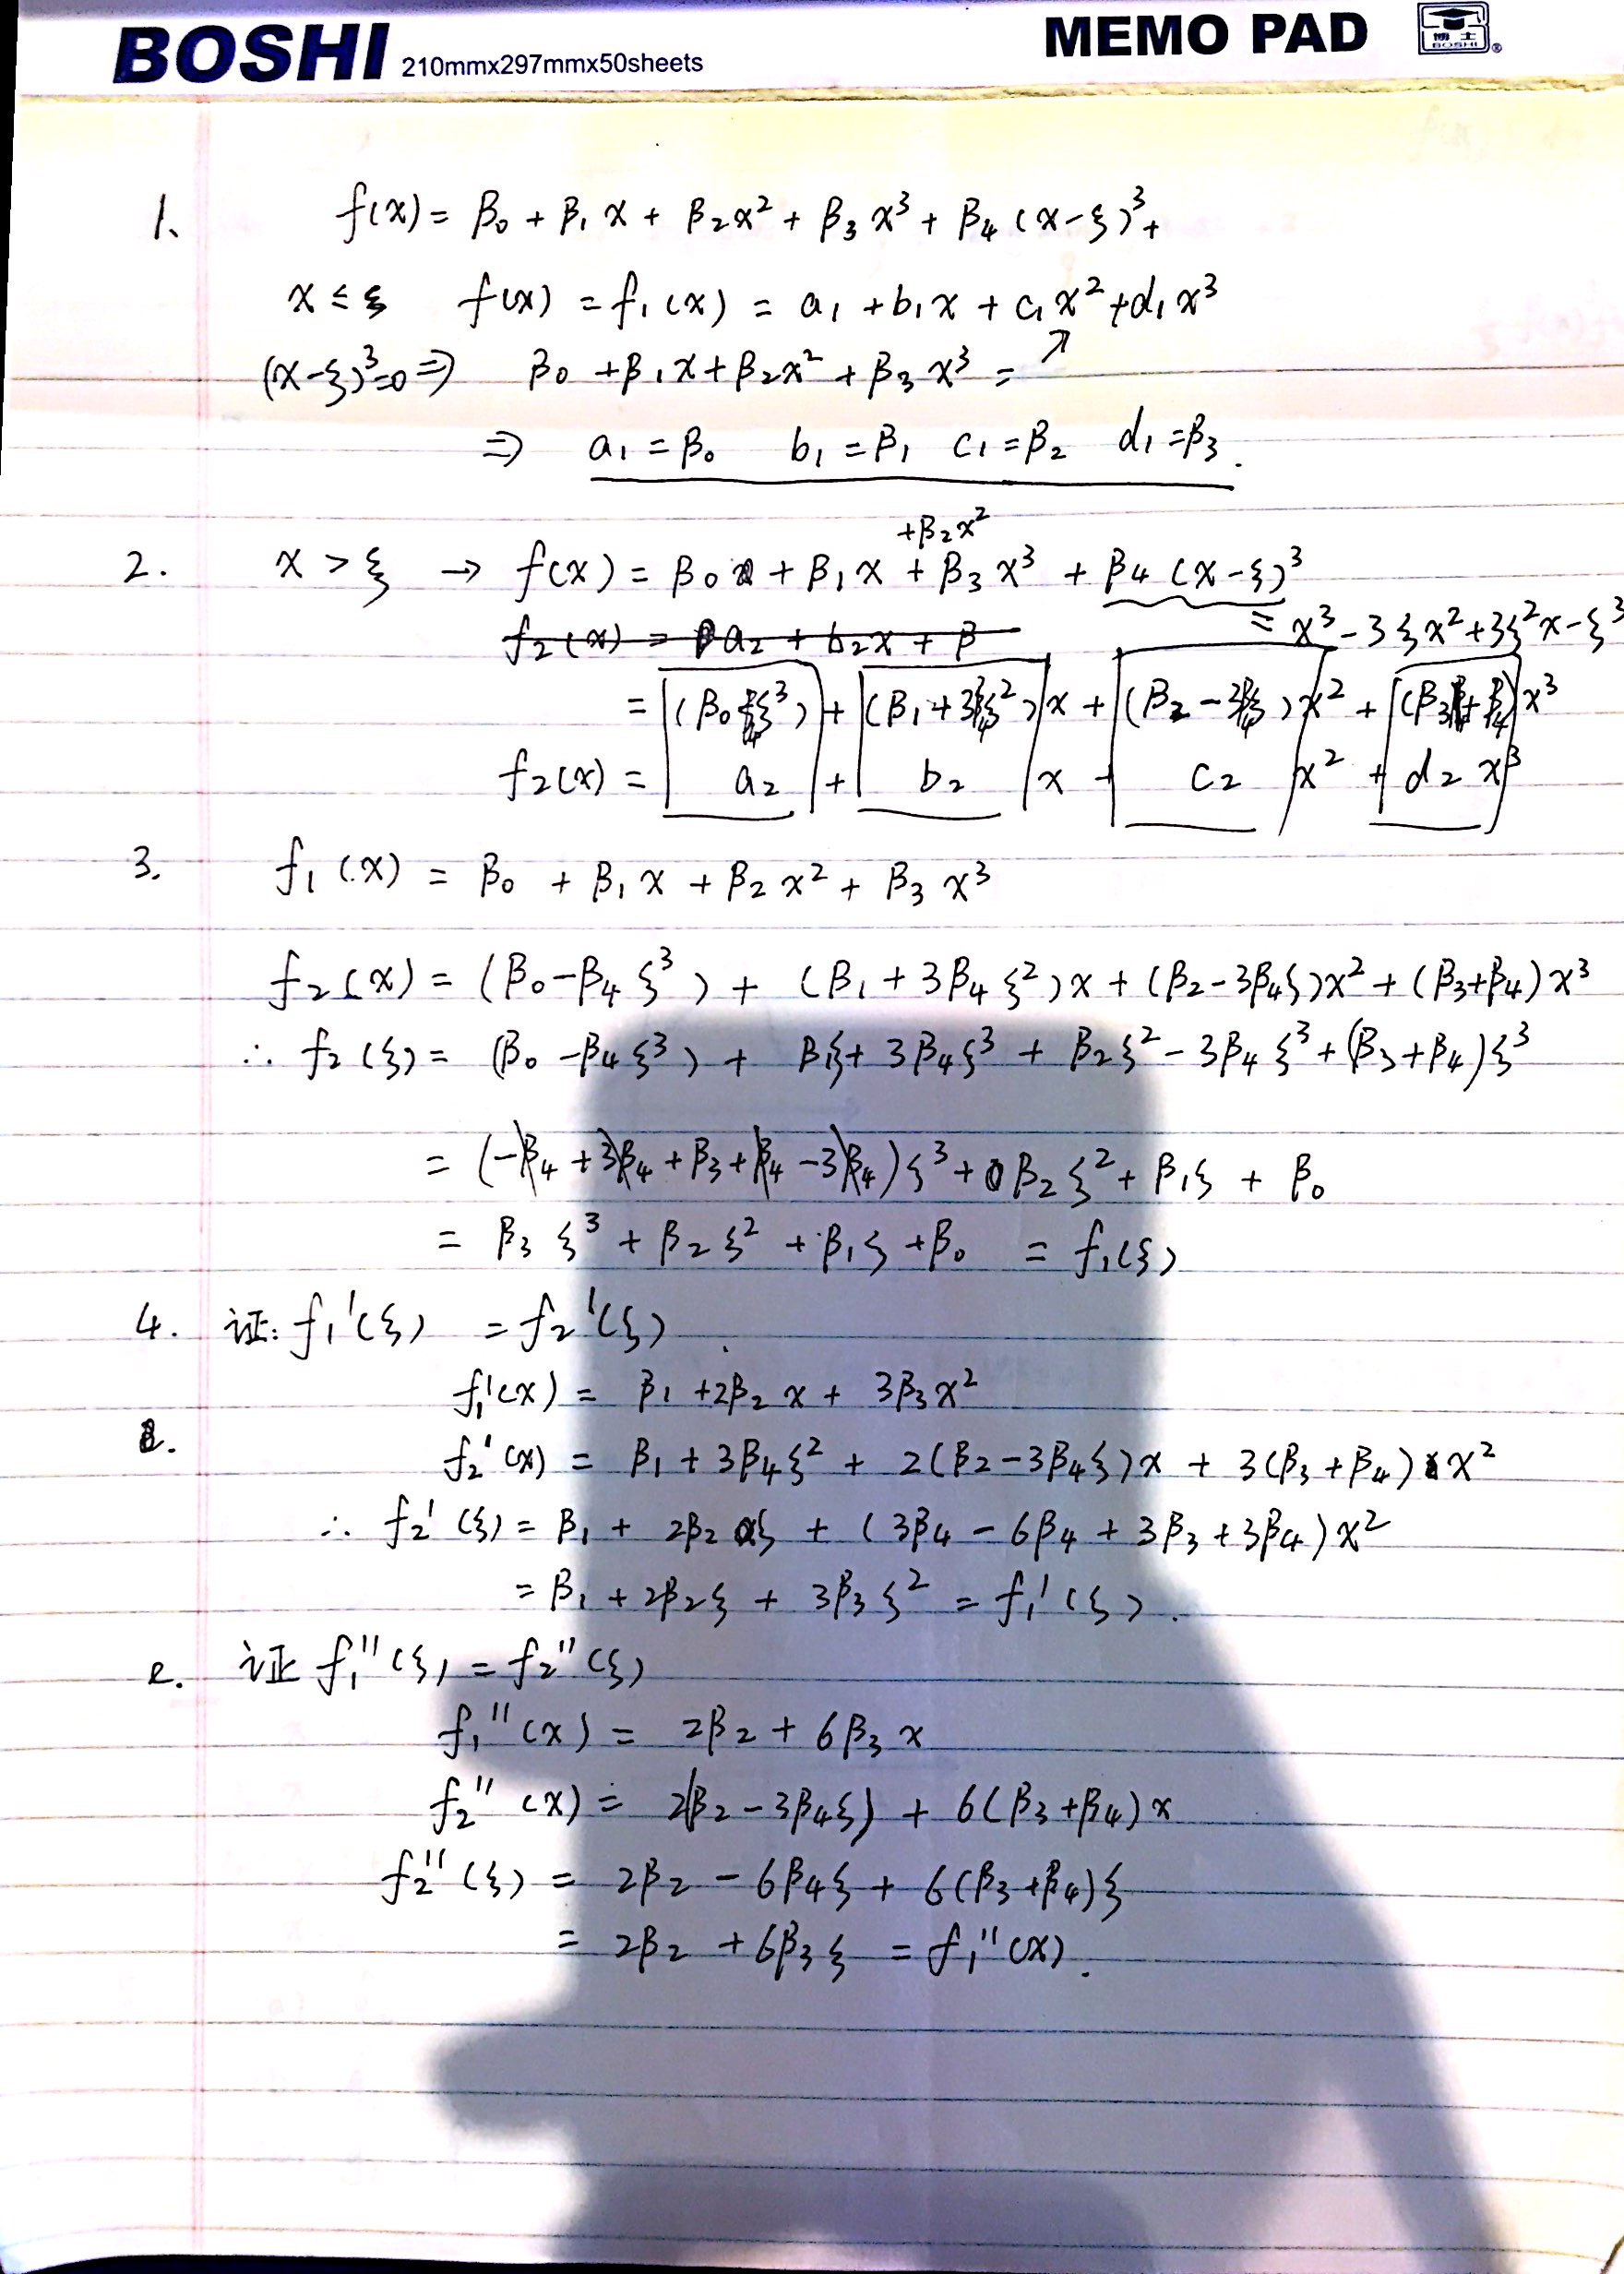 BOSHI 210mmx297mmx50sheets MEMO PAD 博士 BOSHI ®
1. f(x) = β₀ + β₁x + β₂x² + β₃x³ + β₄(x-ξ)³₊
x ≤ ξ f(x) = f₁(x) = a₁ + b₁x + c₁x² + d₁x³
(x-ξ)³=0 ⇒ β₀ + β₁x + β₂x² + β₃x³ = ↗
⇒ a₁ = β₀ b₁ = β₁ c₁ = β₂ d₁ = β₃.
+β₂x²
2. x > ξ → f(x) = β₀ + β₁x + β₃x³ + β₄(x-ξ)³
f₂(x) = a₂ + b₂x + β
= x³ - 3ξx² + 3ξ²x - ξ³
= (β₀-β₄ξ³) + (β₁+3β₄ξ²)x + (β₂-3β₄ξ)x² + (β₃+β₄)x³
f₂(x) = a₂ + b₂ x + c₂ x² + d₂ x³
3. f₁(x) = β₀ + β₁x + β₂x² + β₃x³
f₂(x) = (β₀-β₄ξ³) + (β₁+3β₄ξ²)x + (β₂-3β₄ξ)x² + (β₃+β₄)x³
∴ f₂(ξ) = (β₀-β₄ξ³) + β₁ξ + 3β₄ξ³ + β₂ξ² - 3β₄ξ³ + (β₃+β₄)ξ³
= (-β₄ + 3β₄ + β₃ + β₄ - 3β₄)ξ³ + β₂ξ² + β₁ξ + β₀
= β₃ξ³ + β₂ξ² + β₁ξ + β₀ = f₁(ξ)
4. 证: f₁'(ξ) = f₂'(ξ)
f₁'(x) = β₁ + 2β₂x + 3β₃x²
f₂'(x) = β₁ + 3β₄ξ² + 2(β₂-3β₄ξ)x + 3(β₃+β₄)x²
∴ f₂'(ξ) = β₁ + 2β₂ξ + (3β₄ - 6β₄ + 3β₃ + 3β₄)x²
= β₁ + 2β₂ξ + 3β₃ξ² = f₁'(ξ).
e. 证 f₁''(ξ) = f₂''(ξ)
f₁''(x) = 2β₂ + 6β₃x
f₂''(x) = 2(β₂-3β₄ξ) + 6(β₃+β₄)x
f₂''(ξ) = 2β₂ - 6β₄ξ + 6(β₃+β₄)ξ
= 2β₂ + 6β₃ξ = f₁''(x).